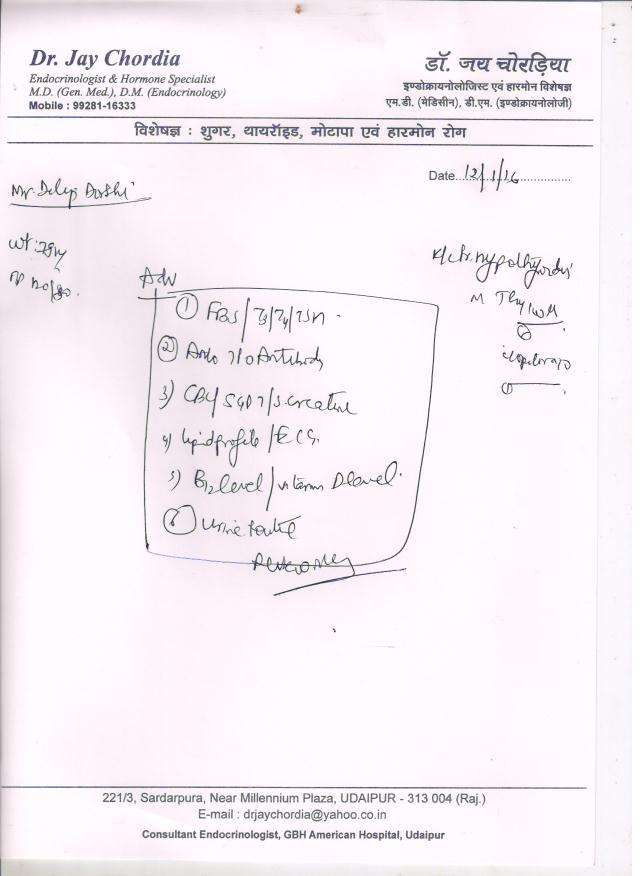 Dr. Jay Chordia
Endocrinologist & Hormone Specialist
M.D. (Gen. Med.), D.M. (Endocrinology)
Mobile : 99281-16333
डॉ. जय चोरड़िया
इण्डोक्रायनोलोजिस्ट एवं हारमोन विशेषज्ञ
एम.डी. (मेडिसीन), डी.एम. (इण्डोक्रायनोलोजी)
विशेषज्ञ : शुगर, थायरॉइड, मोटापा एवं हारमोन रोग
Date...12/1/16...............
Mr. Dilip
wt:
Adv
① FBS / T3/T4/TSH
② Antibody
3) CBC/ SGPT/S.creatine
4) lipid profile / ECG.
5) B12 level / vitamin D level.
⑥ urine routine
221/3, Sardarpura, Near Millennium Plaza, UDAIPUR - 313 004 (Raj.)
E-mail : drjaychordia@yahoo.co.in
Consultant Endocrinologist, GBH American Hospital, Udaipur